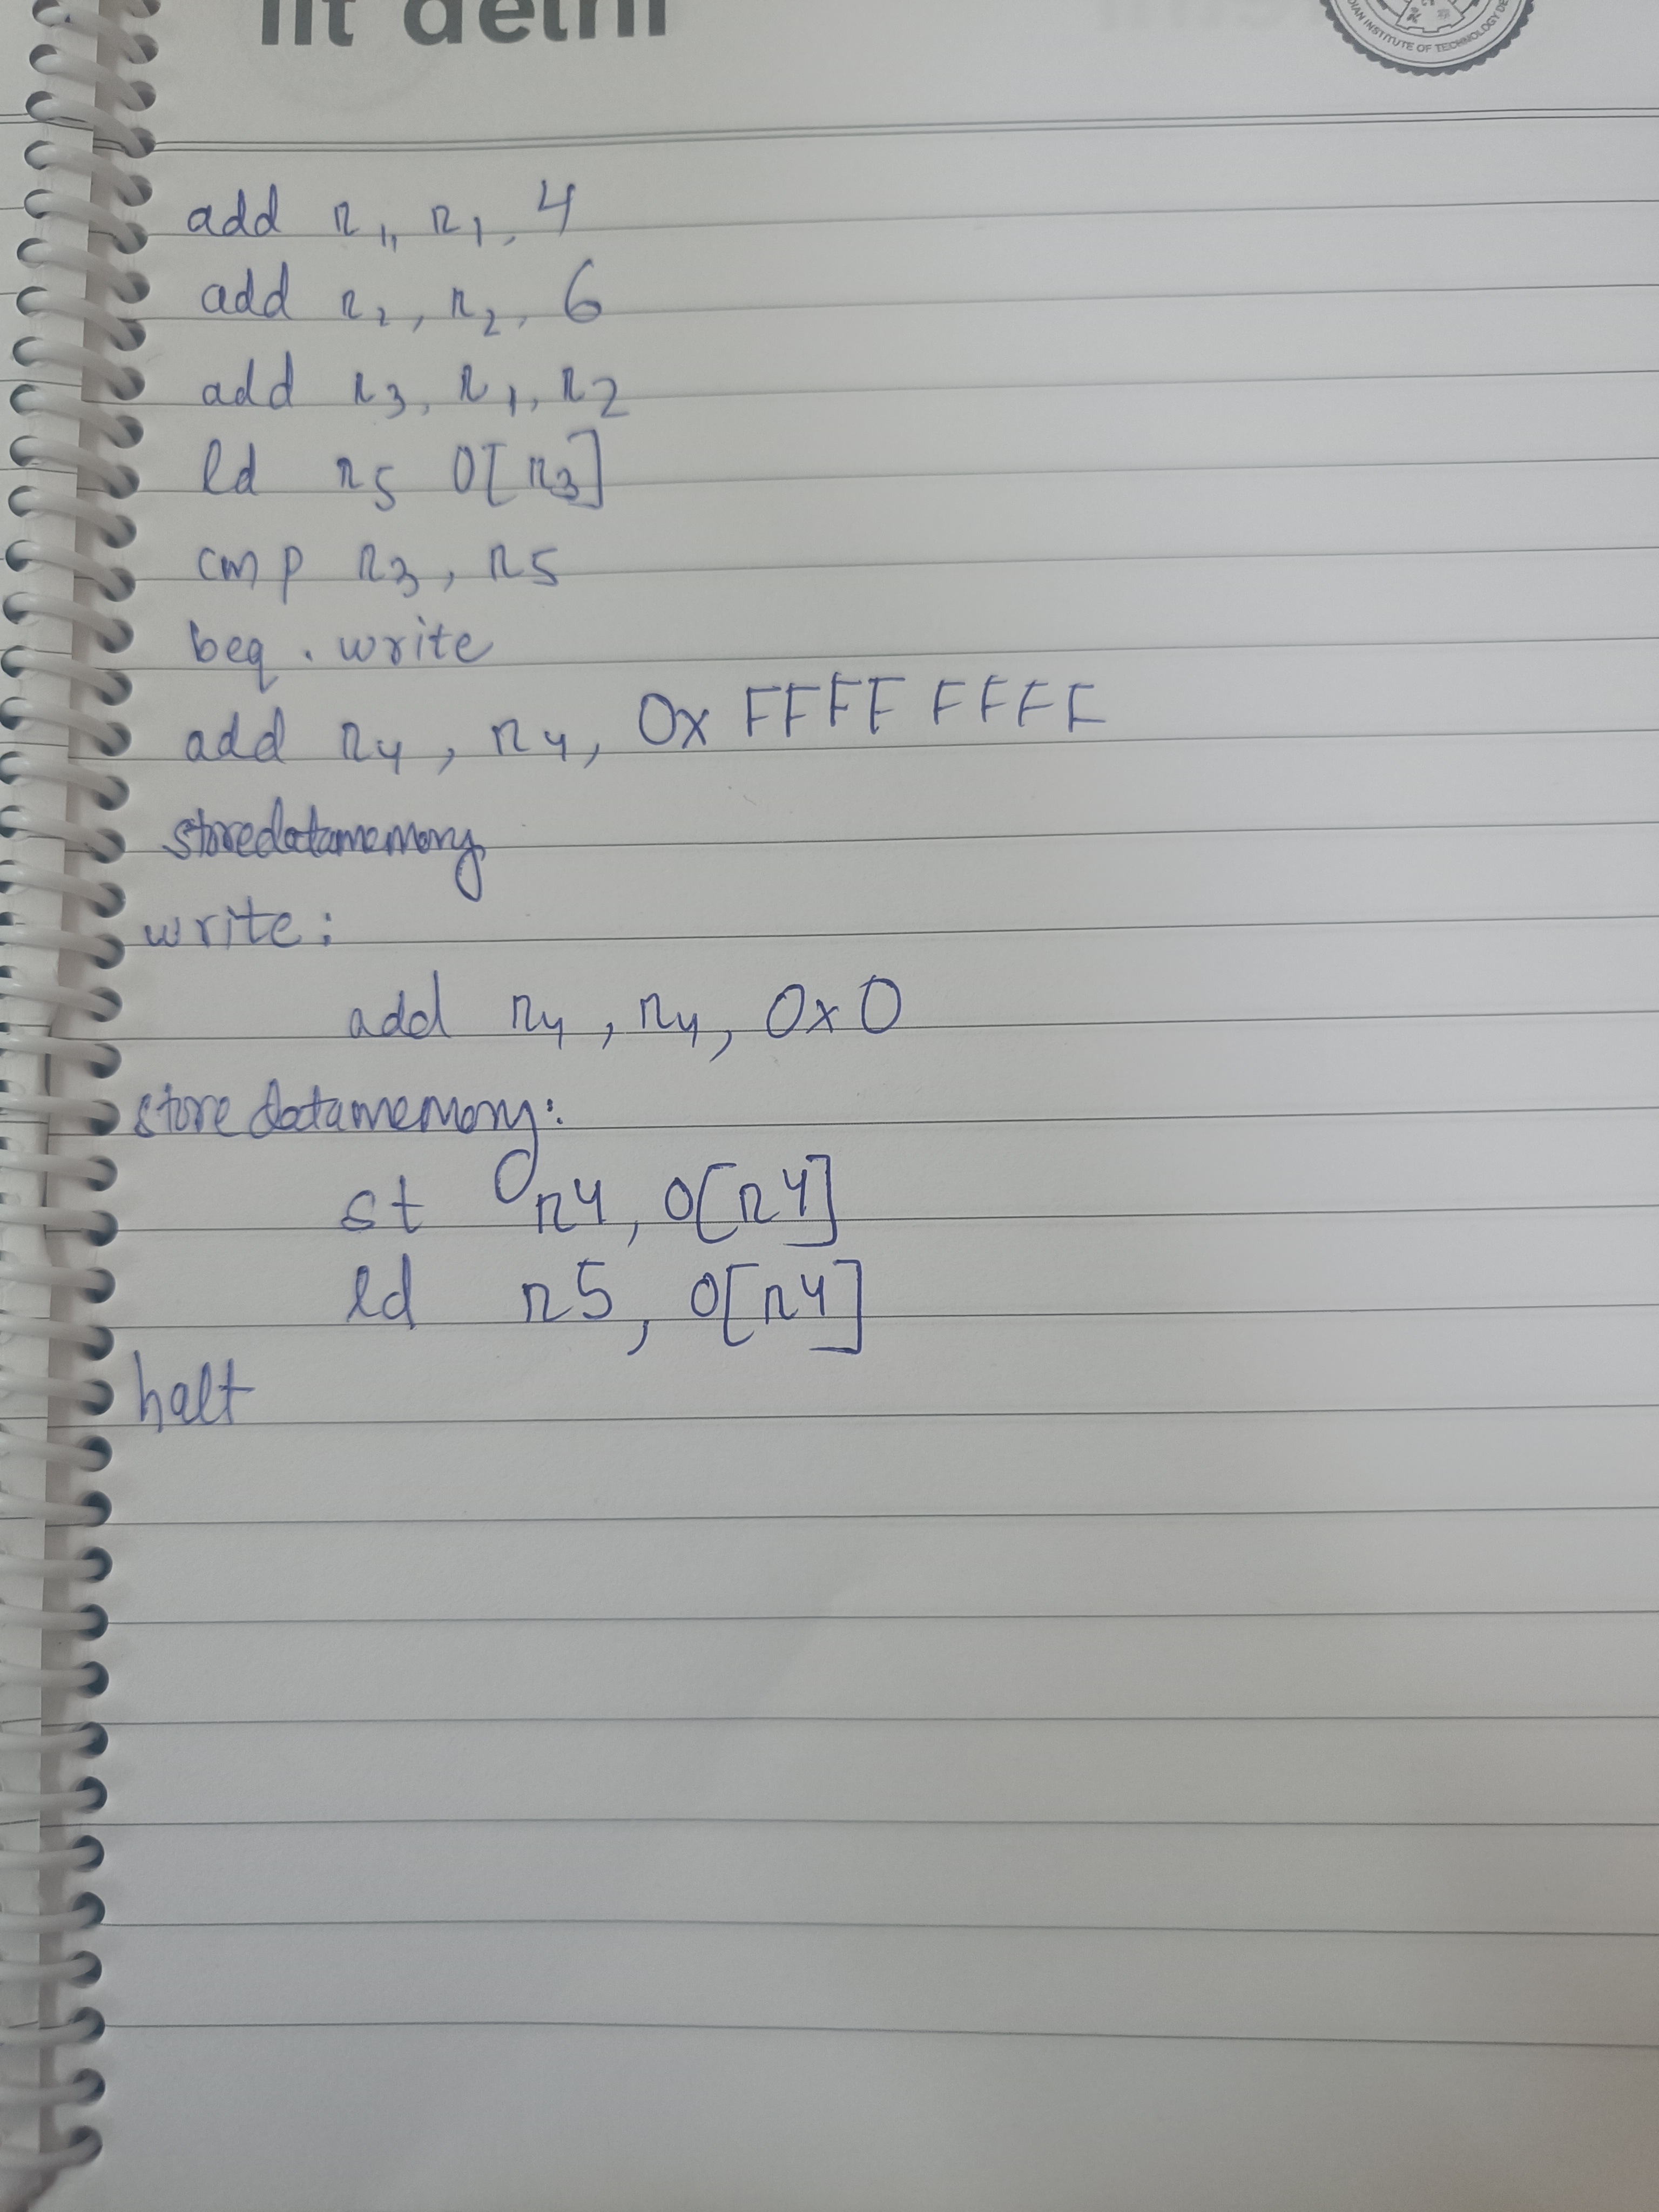 iit delhi
INDIAN INSTITUTE OF TECHNOLOGY DE
add r1, r1, 4
add r2, r2, 6
add r3, r1, r2
ld r5 0[r3]
cmp r3, r5
beq . write
add r4, r4, 0x FFFF FFFF
storedatamemory
write:
add r4, r4, 0x0
storedatamemory:
st r4, 0[r4]
ld r5, 0[r4]
halt